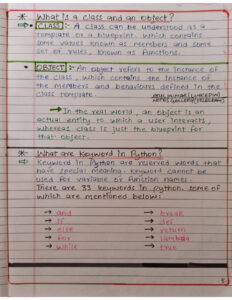 * What is a Class and an Object?
→ CLASS :- A class can be understood as a
template or a blueprint, which contains
some values known as members and some
set of rules, known as functions.
• OBJECT :- An object refers to the instance of
the class, which contains the instance of
the members and behaviours defined in the
class template.
→ In the real world, an object is an
actual entity to which a user interacts,
whereas class is just the blueprint for
that object.
* What are Keyword in Python?
→ Keyword in Python are reserved words that
have special meaning. Keyword cannot be
used for variable or function names.
There are 33 keywords in python, some of
which are mentioned below:
→ and → break
→ if → def
→ else → return
→ for → lambda
→ while → true